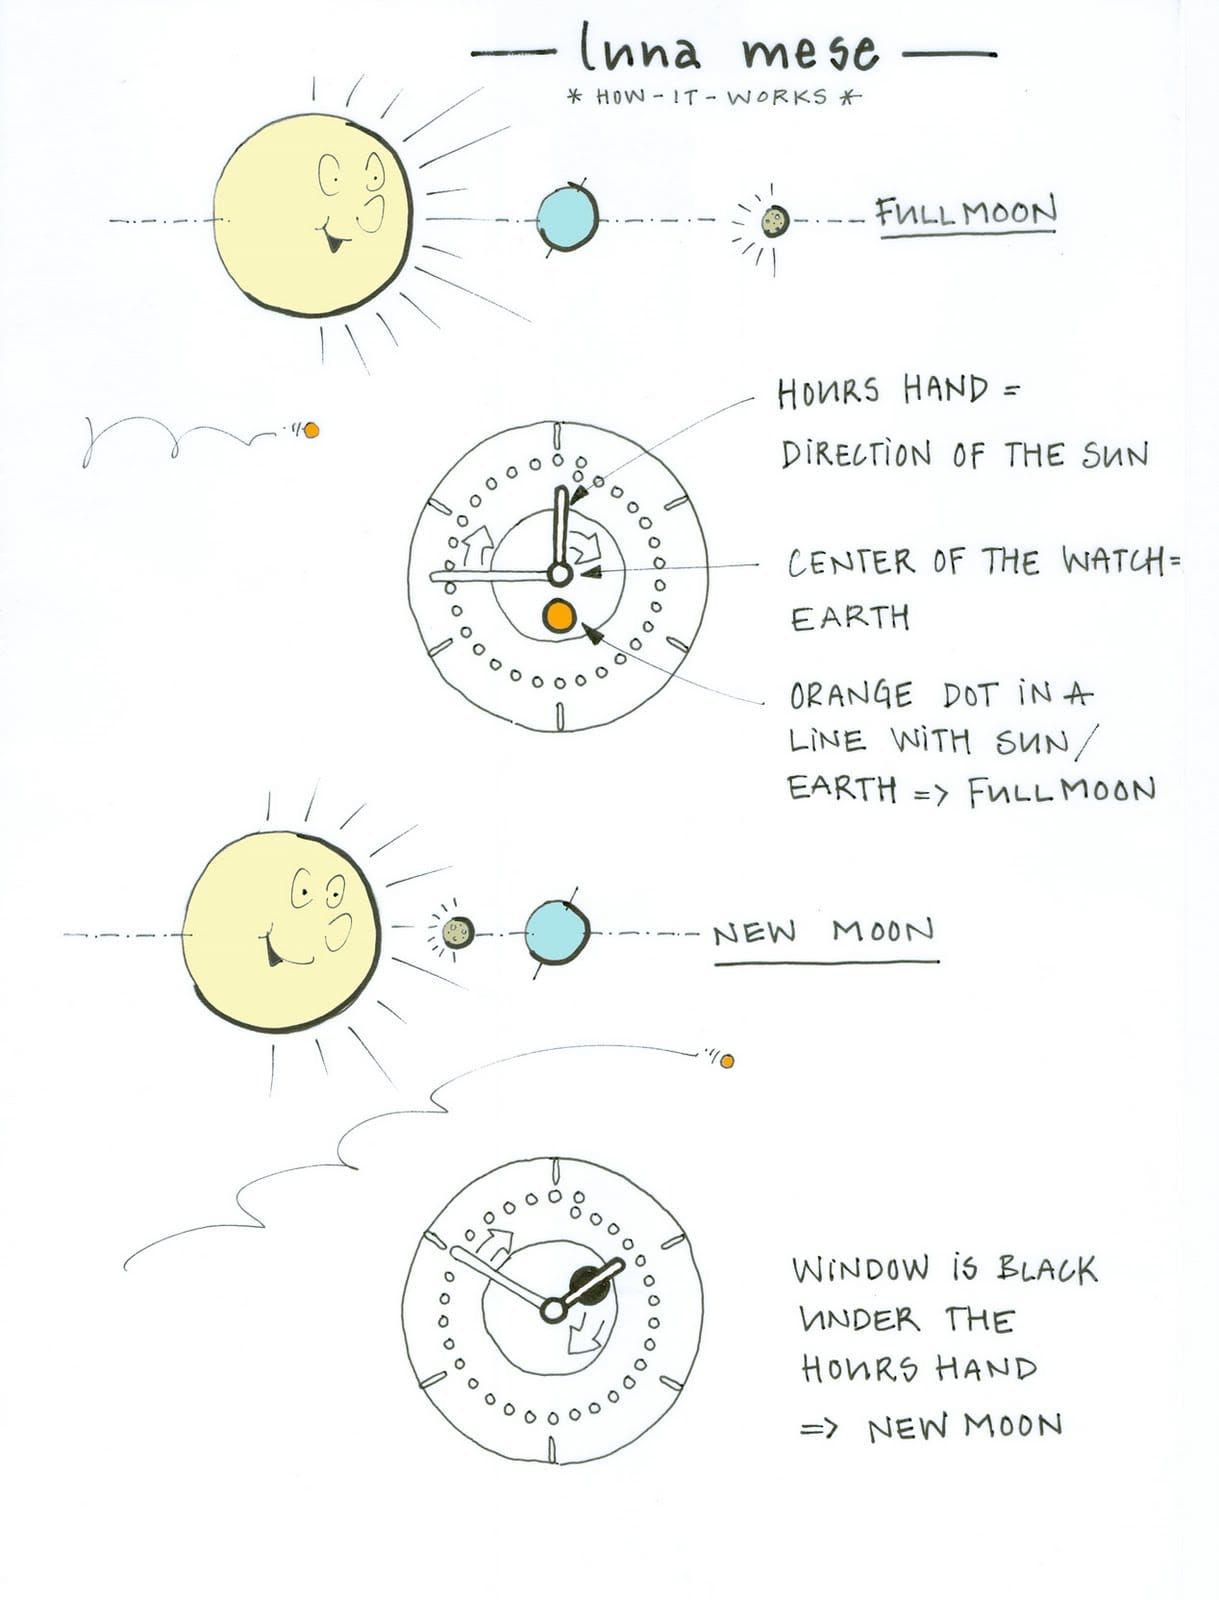 luna mese
* HOW-IT-WORKS *
FULL MOON
HOURS HAND =
DIRECTION OF THE SUN
CENTER OF THE WATCH=
EARTH
ORANGE DOT IN A
LINE WITH SUN/
EARTH => FULL MOON
NEW MOON
WINDOW IS BLACK
UNDER THE
HOURS HAND
=> NEW MOON